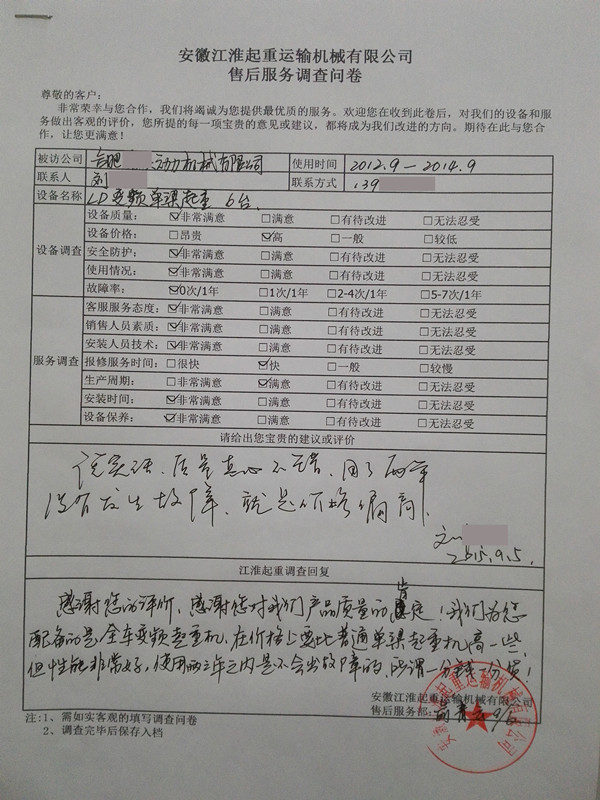 安徽江淮起重运输机械有限公司
售后服务调查问卷
尊敬的客户：
非常荣幸与您合作，我们将竭诚为您提供最优质的服务。欢迎您在收到此卷后，对我们的设备和服
务做出客观的评价，您所提的每一项宝贵的意见或建议，都将成为我们改进的方向。期待在此与您合
作，让您更满意！
被访公司 合肥 动力机械有限公司 使用时间 2012.9—2014.9
联系人 刘 联系方式 139
设备名称 LD变频单梁起重 6台
设备调查 设备质量： ☑非常满意 □满意 □有待改进 □无法忍受
设备价格： □昂贵 ☑高 □一般 □较低
安全防护： ☑非常满意 □满意 □有待改进 □无法忍受
使用情况： ☑非常满意 □满意 □有待改进 □无法忍受
故障率： ☑0次/1年 □1次/1年 □2-4次/1年 □5-7次/1年
服务调查 客服服务态度： ☑非常满意 □满意 □有待改进 □无法忍受
销售人员素质： ☑非常满意 □满意 □有待改进 □无法忍受
安装人员技术： ☑非常满意 □满意 □有待改进 □无法忍受
报修服务时间： □很快 ☑快 □一般 □较慢
生产周期： □非常满意 ☑满意 □有待改进 □无法忍受
安装时间： ☑非常满意 □满意 □有待改进 □无法忍受
设备保养： ☑非常满意 □满意 □有待改进 □无法忍受
请给出您宝贵的建议或评价
说实话，质量真心不错，用了两年
没有发生故障，就是价格偏高．
2015.9.5.
江淮起重调查回复
感谢您的评价，感谢您对我们产品质量的肯定！我们为您
配备的是全车变频起重机，在价格上要比普通单梁起重机高一些，
但性能非常好，使用两三年之内是不会出故障的，所谓一分钱一份货！
安徽江淮起重运输机械有限公司
售后服务部： 9/6
注：1、需如实客观的填写调查问卷
2、调查完毕后保存入档